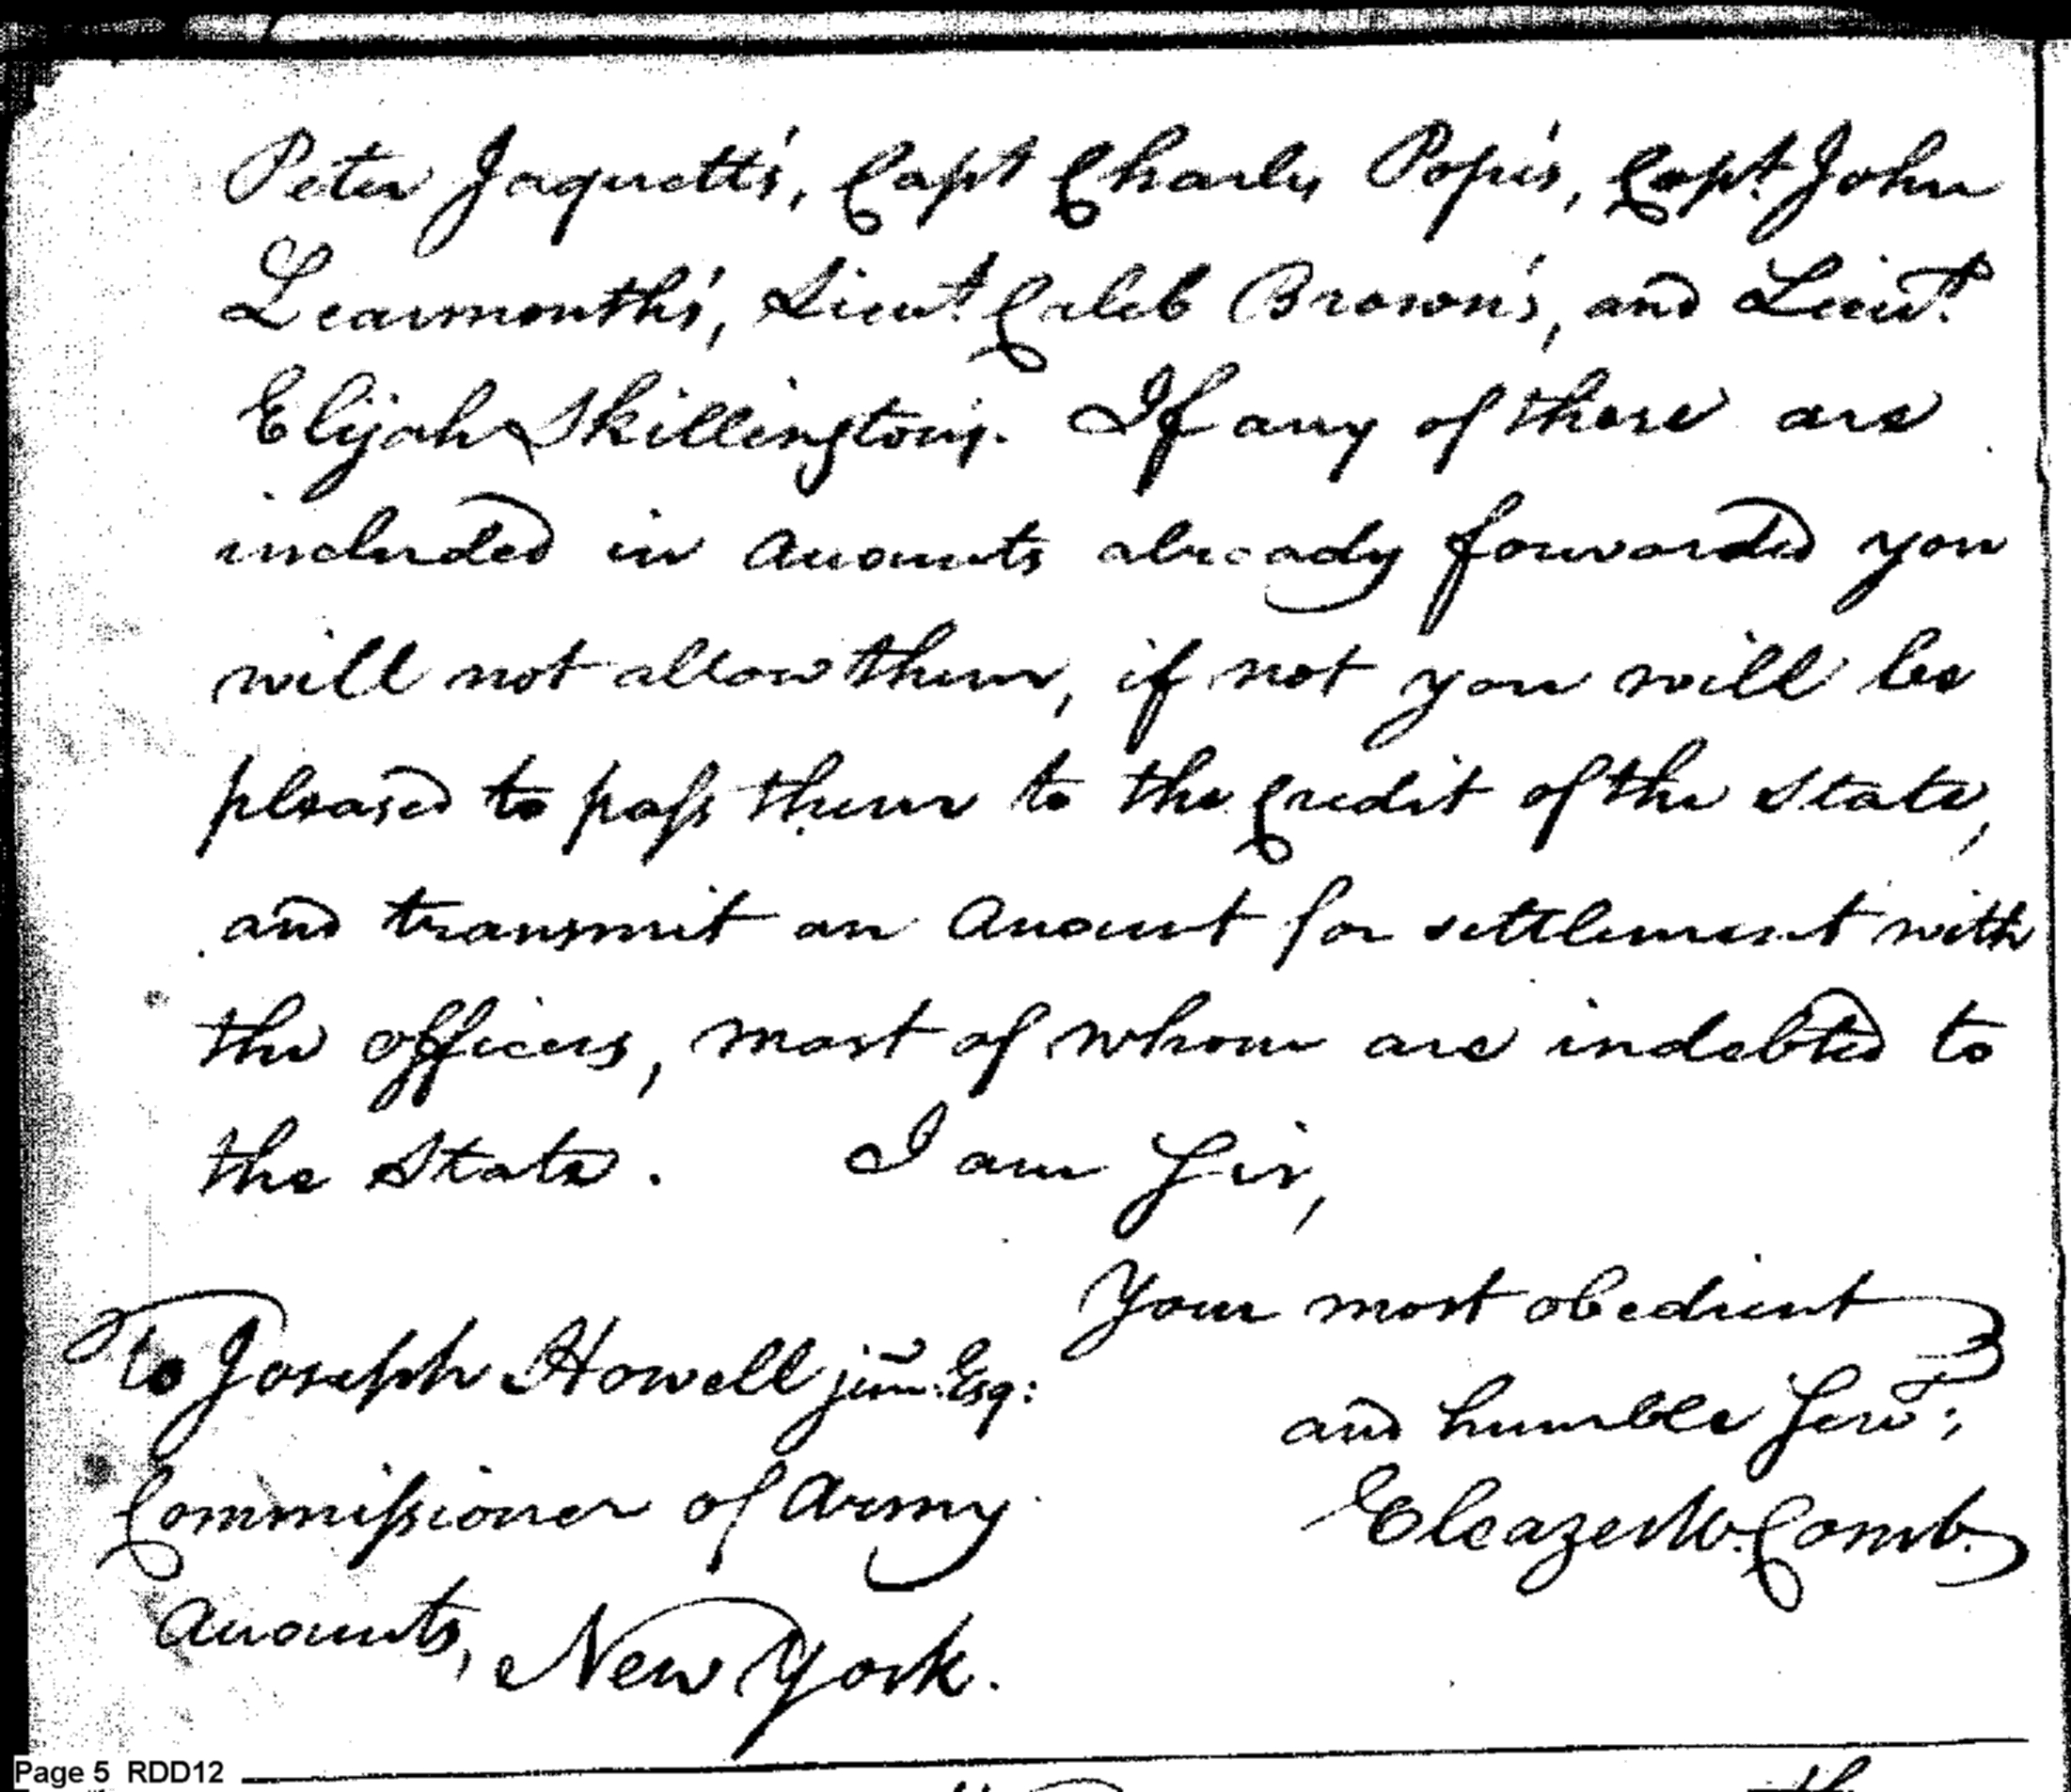 Peter Jaquett's, Capt Charles Pope's, Capt. John
Learmonth's, Lieut. Caleb Brown's, and Lieut.
Elijah Skillington's. If any of these are
included in Accounts already forwarded you
will not allow them, if not you will be
pleased to pass them to the Credit of the State,
and transmit an Account for settlement with
the officers, most of whom are indebted to
the State. I am Sir,
Your most obedient
and humble Servt.;
To Joseph Howell junr. Esq:
Commissioner of Army
Accounts, New York.
Eleazer McComb.
Page 5 RDD12